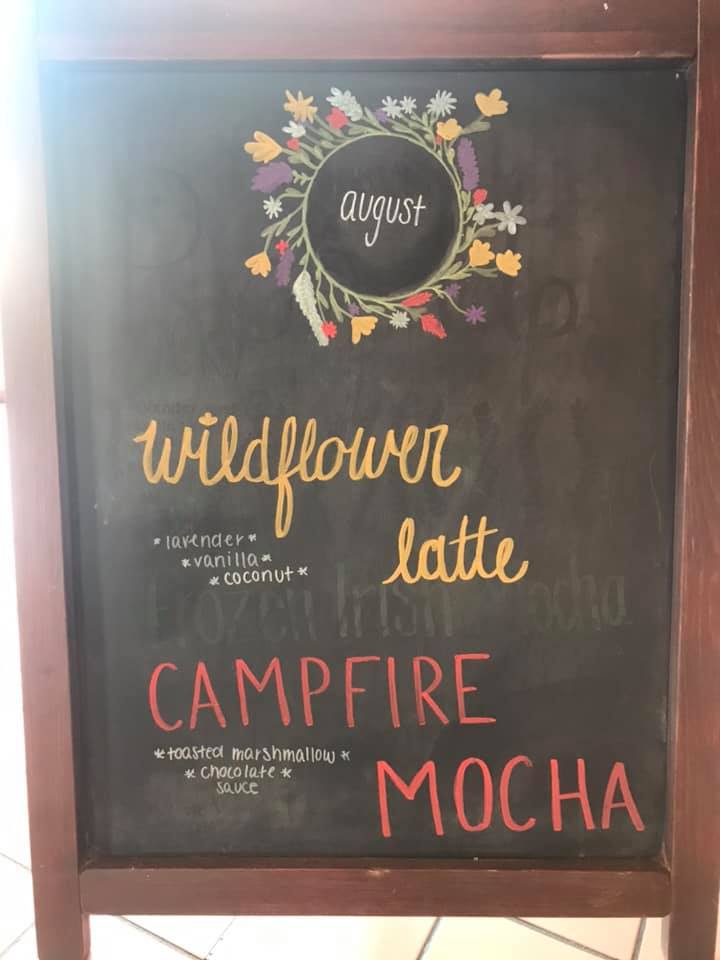 august
wildflower
latte
*lavender*
*vanilla*
*coconut*
Frozen Irish Mocha
CAMPFIRE
MOCHA
*toasted marshmallow*
*chocolate*
sauce